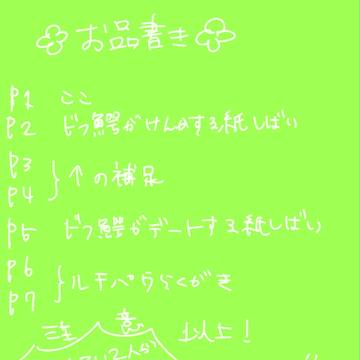 お品書き
p1 ここ
p2 ドフ鰐がけんかする紙しばい
p3
p4 } ↑の補足
p5 ドフ鰐がデートする紙しばい
p6
p7 } ルチパウらくがき
注意 以上!